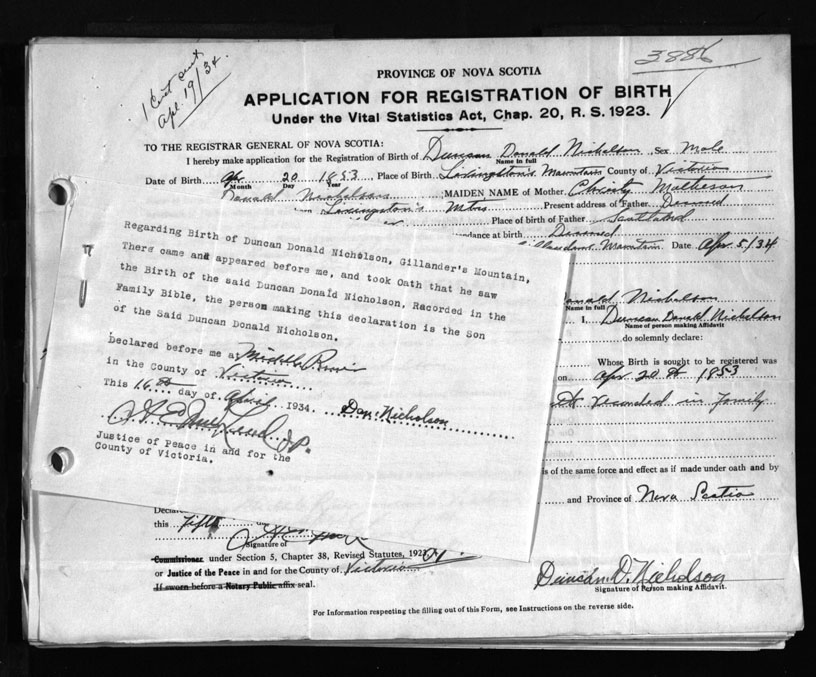 3886
1 Cert sent
Apl. 19/34.
PROVINCE OF NOVA SCOTIA
APPLICATION FOR REGISTRATION OF BIRTH
Under the Vital Statistics Act, Chap. 20, R. S. 1923.
TO THE REGISTRAR GENERAL OF NOVA SCOTIA:
I hereby make application for the Registration of Birth of Duncan Donald Nicholson Sex Male
Name in full
Date of Birth Ap 20 1853 Place of Birth Livingston's Mountain County of Victoria
Month Day Year
Donald Nicholson MAIDEN NAME of Mother Christy Matheson
Livingston's Mtns Present address of Father Deceased
Place of birth of Father Scotland
ndance at birth Deceased
Mountain Date Apr 5/34
Regarding Birth of Duncan Donald Nicholson, Gillander's Mountain,
There came and appeared before me, and took Oath that he saw
the Birth of the said Duncan Donald Nicholson, Racorded in the
Family Bible, the person making this declaration is the Son
of the Said Duncan Donald Nicholson.
Declared before me at Middle River
in the County of Victoria
This 16th day of April 1934. Dan. Nicholson
J.P.
Justice of Peace in and for the
County of Victoria.
onald Nicholson
Name in full
I, Duncan Donald Nicholson
Name of person making Affidavit
do solemnly declare:
Whose Birth is sought to be registered was
on Apr 20th 1853
recorded in Family
is of the same force and effect as if made under oath and by
and Province of Nova Scotia
Declar
this Fifth da
Signature of
Commissioner under Section 5, Chapter 38, Revised Statutes, 192
or Justice of the Peace in and for the County of Victoria
If sworn before a Notary Public affix seal.
Duncan D. Nicholson
Signature of Person making Affidavit.
For Information respecting the filling out of this Form, see Instructions on the reverse side.